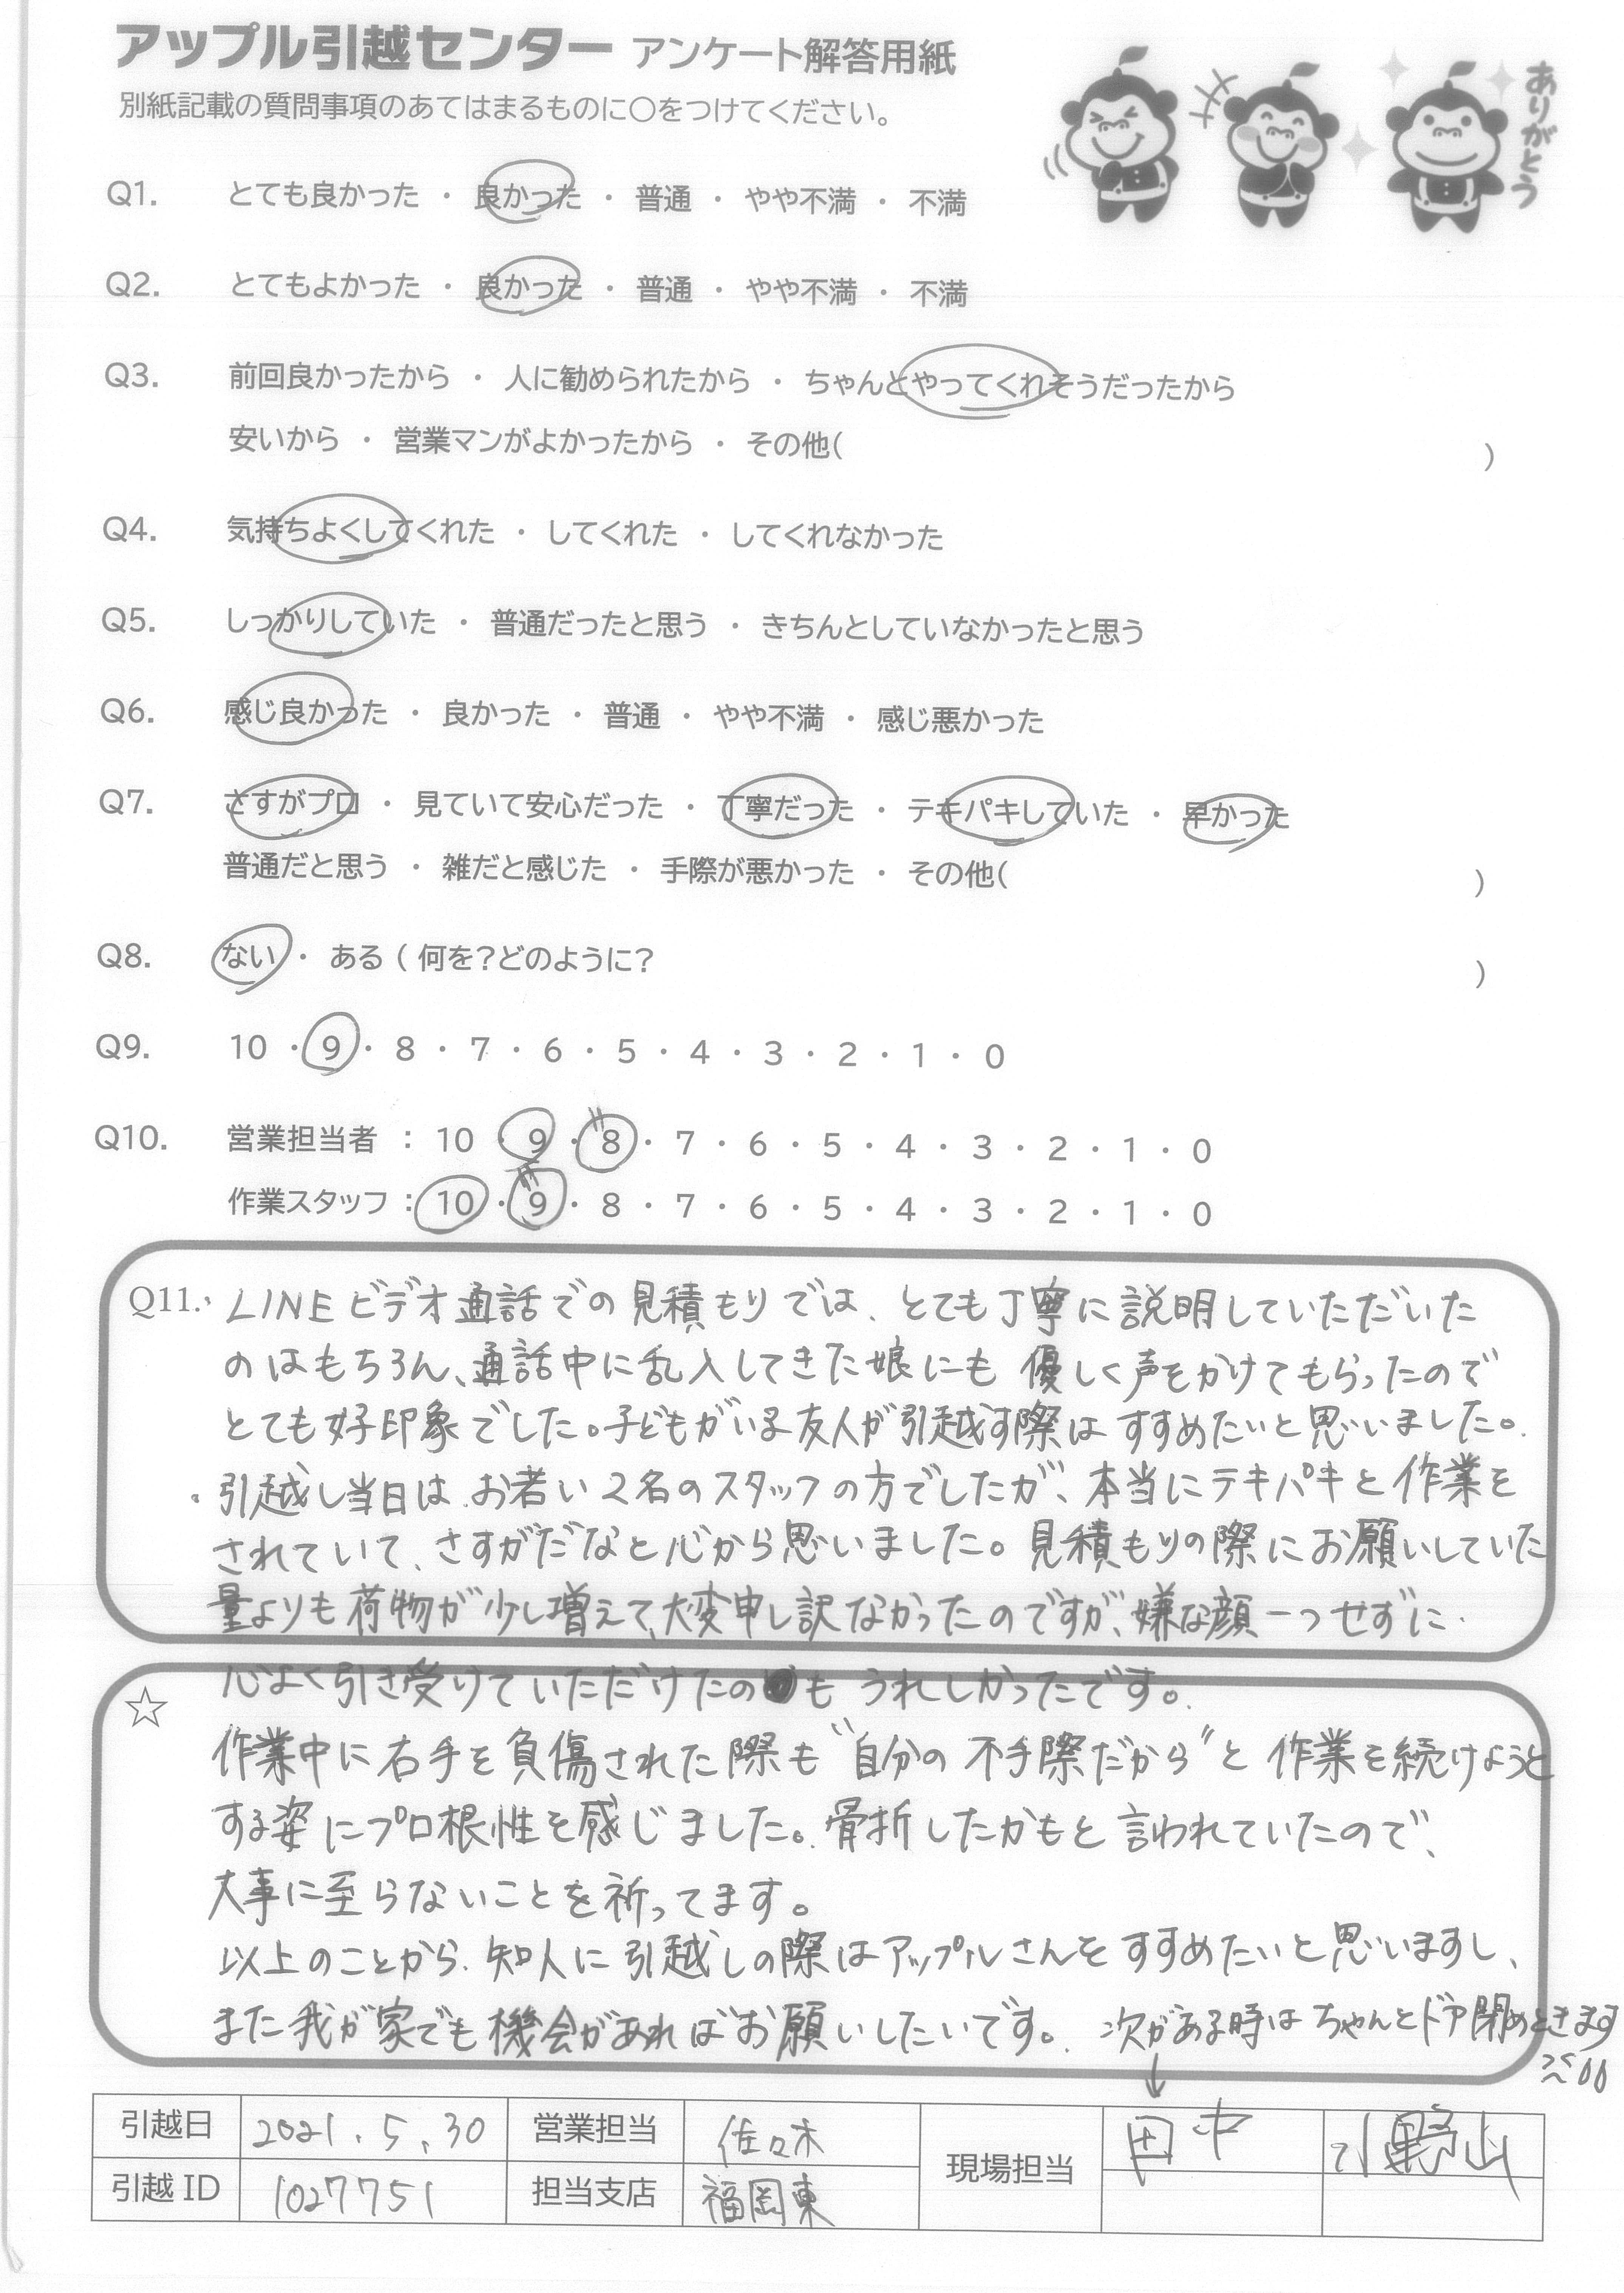 アップル引越センター アンケート解答用紙
別紙記載の質問事項のあてはまるものに〇をつけてください。
ありがとう
Q1. とても良かった ・ 良かった ・ 普通 ・ やや不満 ・ 不満
Q2. とてもよかった ・ 良かった ・ 普通 ・ やや不満 ・ 不満
Q3. 前回良かったから ・ 人に勧められたから ・ ちゃんとやってくれそうだったから
安いから ・ 営業マンがよかったから ・ その他( )
Q4. 気持ちよくしてくれた ・ してくれた ・ してくれなかった
Q5. しっかりしていた ・ 普通だったと思う ・ きちんとしていなかったと思う
Q6. 感じ良かった ・ 良かった ・ 普通 ・ やや不満 ・ 感じ悪かった
Q7. さすがプロ ・ 見ていて安心だった ・ 丁寧だった ・ テキパキしていた ・ 早かった
普通だと思う ・ 雑だと感じた ・ 手際が悪かった ・ その他( )
Q8. ない ・ ある ( 何を?どのように? )
Q9. 10 ・ 9 ・ 8 ・ 7 ・ 6 ・ 5 ・ 4 ・ 3 ・ 2 ・ 1 ・ 0
Q10. 営業担当者 : 10 ・ 9 ・ 8 ・ 7 ・ 6 ・ 5 ・ 4 ・ 3 ・ 2 ・ 1 ・ 0
作業スタッフ : 10 ・ 9 ・ 8 ・ 7 ・ 6 ・ 5 ・ 4 ・ 3 ・ 2 ・ 1 ・ 0
Q11. ・LINEビデオ通話での見積もりでは、とても丁寧に説明していただいた
のはもちろん、通話中に乱入してきた娘にも優しく声をかけてもらったので
とても好印象でした。子どもがいる友人が引越す際はすすめたいと思いました。
・引越し当日は、お若い2名のスタッフの方でしたが、本当にテキパキと作業を
されていて、さすがだなと心から思いました。見積もりの際にお願いしていた
量よりも荷物が少し増えて、大変申し訳なかったのですが、嫌な顔一つせずに
心よく引き受けていただけたのも うれしかったです。
☆ 作業中に右手を負傷された際も“自分の不手際だから”と作業を続けようと
する姿にプロ根性を感じました。骨折したかもと言われていたので、
大事に至らないことを祈ってます。
以上のことから、知人に引越しの際はアップルさんをすすめたいと思いますし、
また我が家でも機会があればお願いしたいです。 次がある時はちゃんとドア閉めときます
引越日 2021.5.30 営業担当 佐々木 現場担当 田中 小野山
引越ID 1027751 担当支店 福岡東